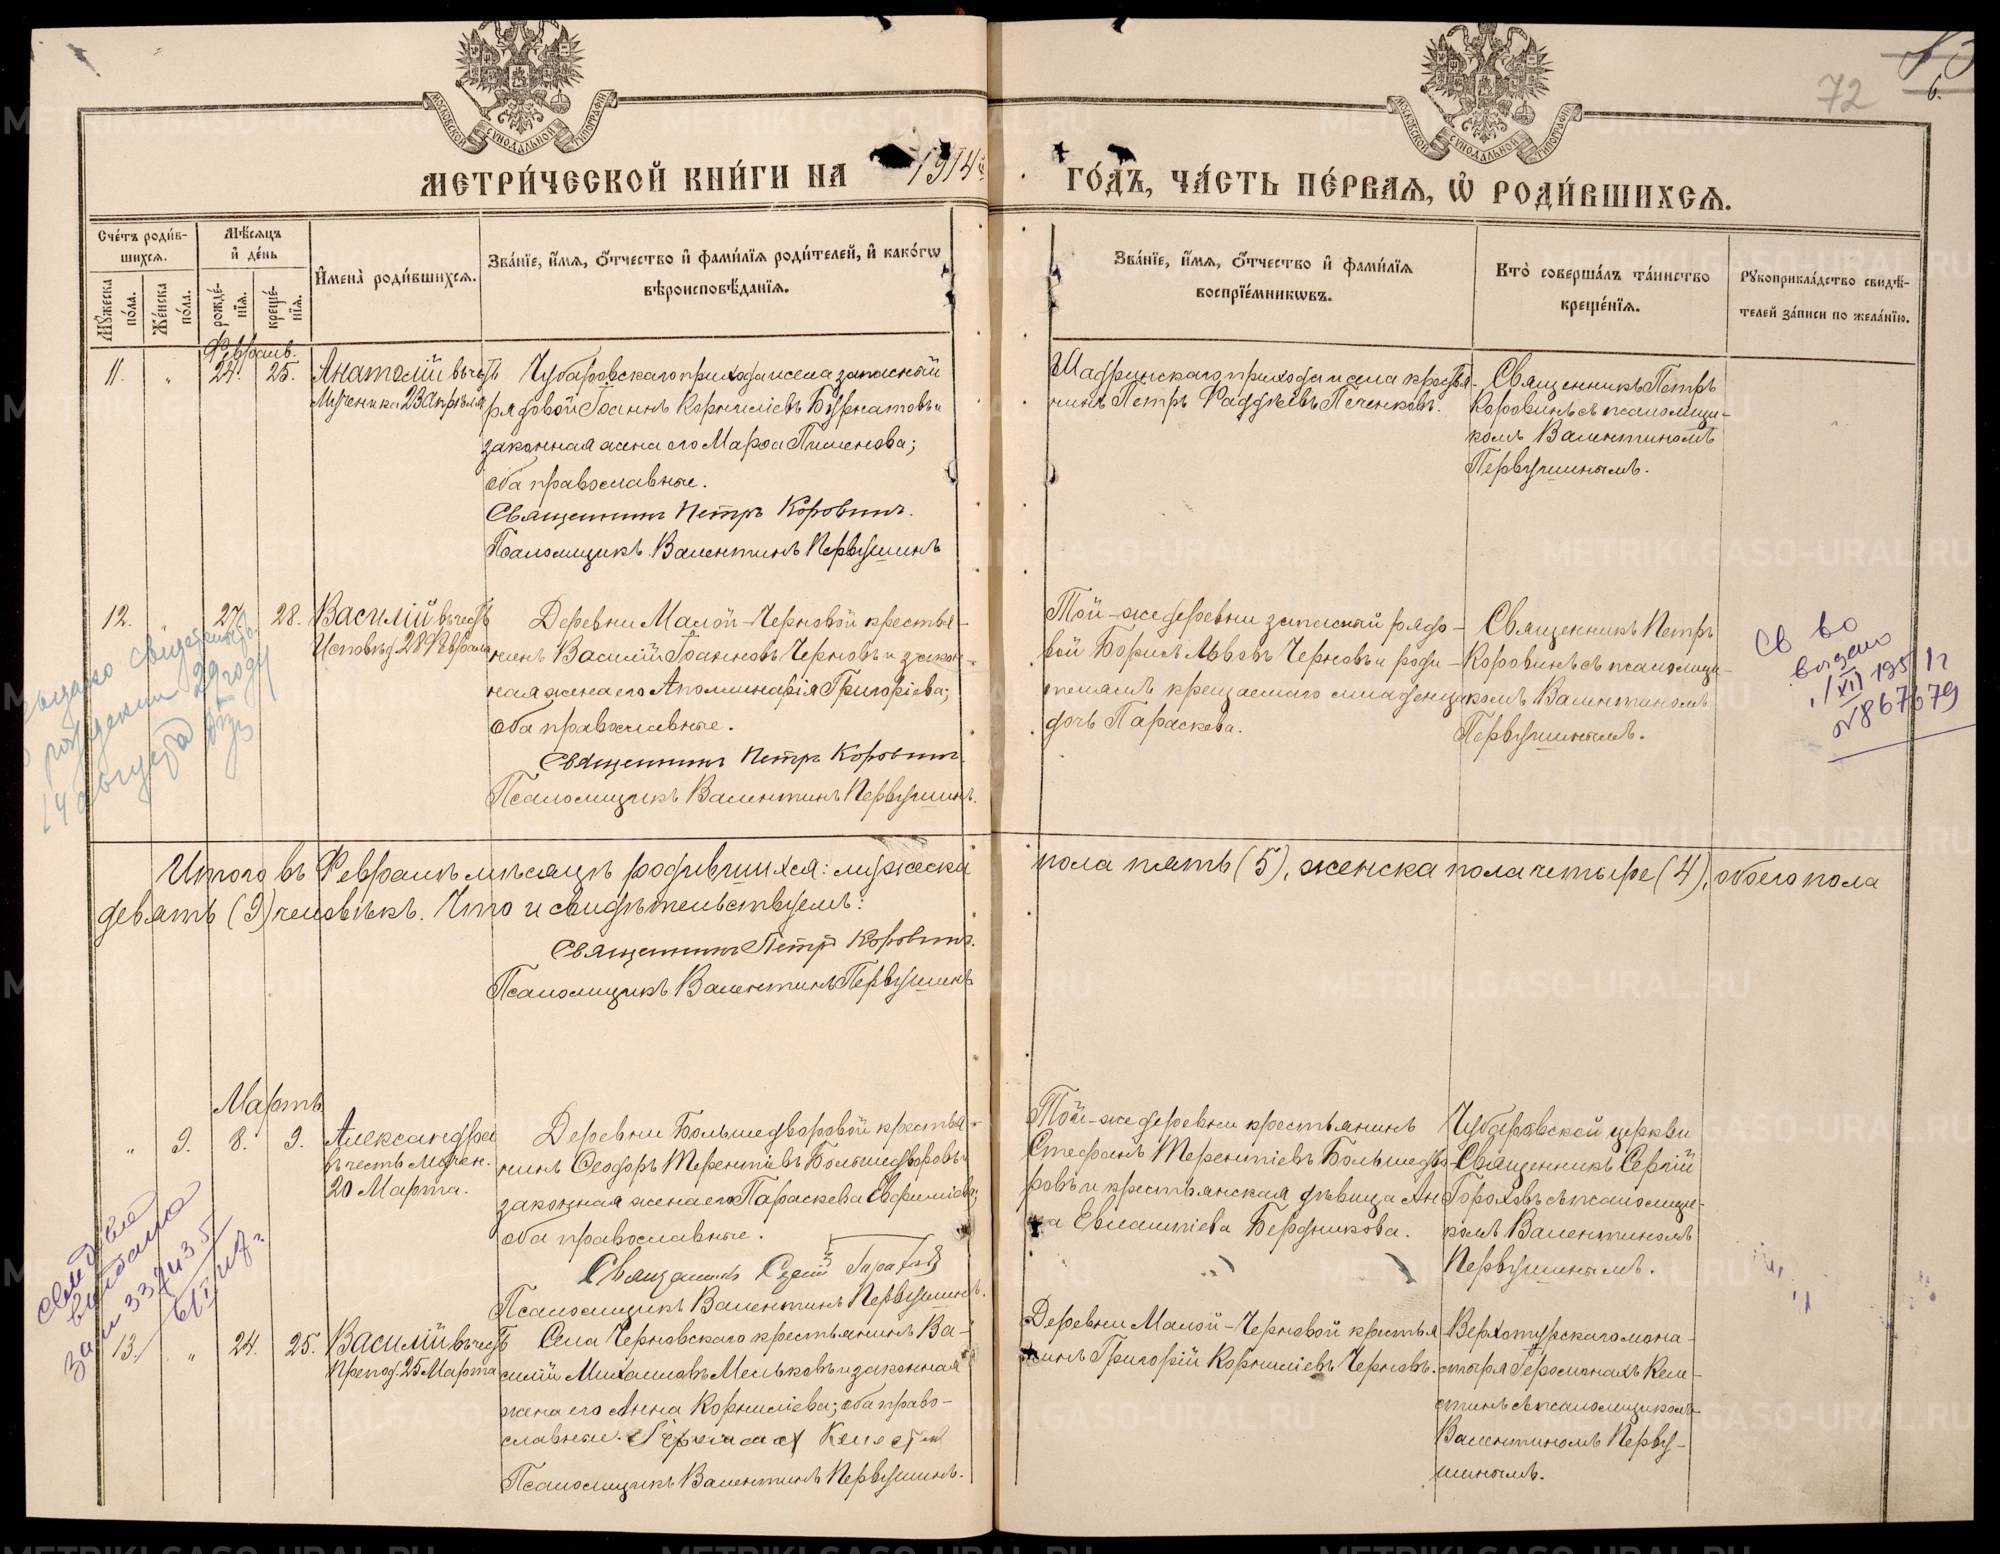 72
6.
МОСКОВСКОЙ СУНОДАЛЬНОЙ ТИПОГРАФІИ
МОСКОВСКОЙ СУНОДАЛЬНОЙ ТИПОГРАФІИ
МЕТРИ́ЧЕСКОЙ КНИ́ГИ НА 1914
ГО́ДЪ, ЧА́СТЬ ПЕ́РВАЯ, Ѡ РОДИ́ВШИХСЯ.
Сче́тъ роди́в-
шихся.
Мѣ́сяцъ
и де́нь
Му́жеска по́ла.
Же́нска по́ла.
рожде́нія.
креще́нія.
И́мена роди́вшихся.
Зва́ніе, и́мя, о́тчество и фами́лія роди́телей, и како́гѡ
вѣроисповѣ́данія.
Зва́ніе, и́мя, о́тчество и фами́лія
воспріе́мникѡвъ.
Кто̀ соверша́лъ та́инство
креще́нія.
Рукоприкла́дство свидѣ́-
телей за́писи по жела́нію.
Февраль.
11. " 24. 25.
Анатолій въ честь
Мученика 23 Апрѣля
Чубаровскаго прихода и села запасный
рядовой Іоаннъ Корниліевъ Бурнатовъ и
законная жена его Марѳа Пименова;
оба православные.
Священникъ Петръ Коровинъ.
Псаломщикъ Валентинъ Первушинъ
Шадринскаго прихода и села крестья-
нинъ Петръ Фаддѣевъ Печенковъ.
Священникъ Петръ
Коровинъ съ псаломщи-
комъ Валентиномъ
Первушинымъ.
12. " 27. 28.
Василій въ честь
Исповѣд. 28 Февраля
Деревни Малой-Черновой крестья-
нинъ Василій Іоанновъ Черновъ и закон-
ная жена его Аполлинарія Григоріева;
оба православные.
Священникъ Петръ Коровинъ.
Псаломщикъ Валентинъ Первушинъ.
Той-же деревни запасный рядо-
вой Борисъ Львовъ Черновъ и роди-
телямъ крещаемого младенца
дочь Параскева.
Священникъ Петръ
Коровинъ съ псаломщи-
комъ Валентиномъ
Первушинымъ.
Св во
выдано
1/XII 1951 г
№ 867679
выдано свидетельство
о рождении 29 году
14 августа
Итого въ Февралѣ мѣсяцѣ родившихся: мужеска пола пять (5), женска пола четыре (4), обоего пола
девять (9) человѣкъ. Что и свидѣтельствуемъ:
Священникъ Петръ Коровинъ.
Псаломщикъ Валентинъ Первушинъ
Мартъ
" 9. 8. 9.
Александра
въ честь Мучен.
20 Марта.
Деревни Большедворовой крестья-
нинъ Ѳеодоръ Терентіевъ Большедворовъ и
законная жена его Параскева Евфиміева;
оба православные.
Священникъ Сергій
Псаломщикъ Валентинъ Первушинъ.
Той-же деревни крестьянинъ
Стефанъ Терентіевъ Большедво-
ровъ и крестьянская дѣвица Ан-
на Евлампіева Бердникова.
Чубаровской церкви
Священникъ Сергій
Гороховъ съ псаломщи-
комъ Валентиномъ
Первушинымъ.
13. " 24. 25.
Василій въ честь
Препод. 25 Марта
Села Черновскаго крестьянинъ Ва-
силій Михаиловъ Мельковъ и законная
жена его Анна Корниліева; оба право-
славные. Іеромонах Келестин
Псаломщикъ Валентинъ Первушинъ.
Деревни Малой-Черновой крестья-
нинъ Григорій Корниліевъ Черновъ.
Верхотурскаго мона-
стыря Іеромонахъ Келе-
стинъ съ псаломщикомъ
Валентиномъ Перву-
шинымъ.
METRIKI.GASO-URAL.RU